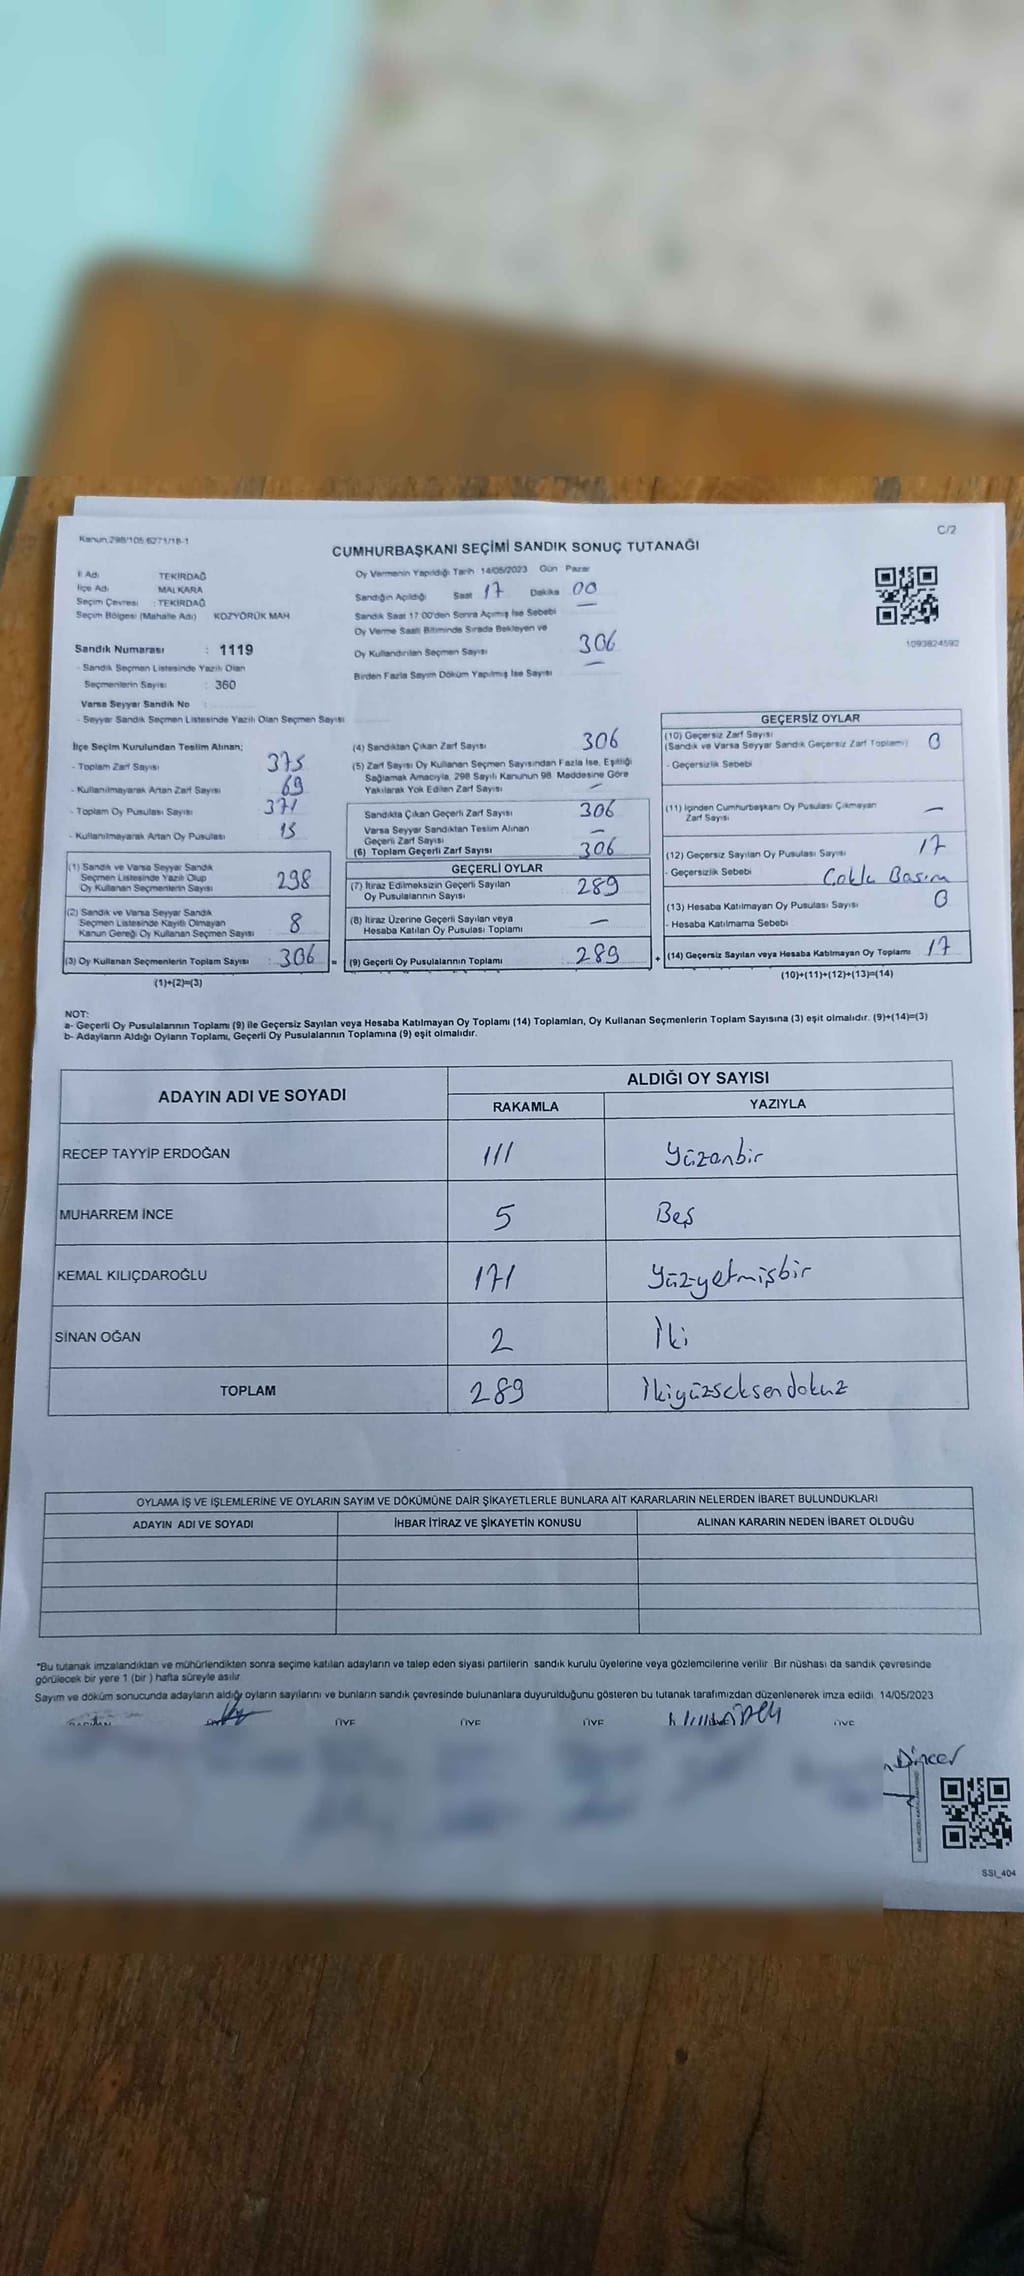 Kanun,298/105 6271/18-1
C/2
CUMHURBAŞKANI SEÇİMİ SANDIK SONUÇ TUTANAĞI
İl Adı TEKİRDAĞ
İlçe Adı MALKARA
Seçim Çevresi : TEKİRDAĞ
Seçim Bölgesi (Mahalle Adı) KOZYÖRÜK MAH
Sandık Numarası : 1119
- Sandık Seçmen Listesinde Yazılı Olan
Seçmenlerin Sayısı : 360
Varsa Seyyar Sandık No
- Seyyar Sandık Seçmen Listesinde Yazılı Olan Seçmen Sayısı
Oy Vermenin Yapıldığı Tarih 14/05/2023 Gün Pazar
Sandığın Açıldığı Saat 17 Dakika 00
Sandık Saat 17 00'den Sonra Açımış İse Sebebi —
Oy Verme Saati Bitiminde Sırada Bekleyen ve
Oy Kullandırılan Seçmen Sayısı 306
Birden Fazla Sayım Döküm Yapılmış İse Sayısı —
1093824592
İlçe Seçim Kurulundan Teslim Alınan;
- Toplam Zarf Sayısı 375
- Kullanılmayarak Artan Zarf Sayısı 69
- Toplam Oy Pusulası Sayısı 371
- Kullanılmayarak Artan Oy Pusulası 13
(1) Sandık ve Varsa Seyyar Sandık
Seçmen Listesinde Yazılı Olup
Oy Kullanan Seçmenlerin Sayısı 298
(2) Sandık ve Varsa Seyyar Sandık
Seçmen Listesinde Kayıtlı Olmayan
Kanun Gereği Oy Kullanan Seçmen Sayısı 8
(3) Oy Kullanan Seçmenlerin Toplam Sayısı : 306
(1)+(2)=(3)
(4) Sandıktan Çıkan Zarf Sayısı 306
(5) Zarf Sayısı Oy Kullanan Seçmen Sayısından Fazla İse, Eşitliği
Sağlamak Amacıyla, 298 Sayılı Kanunun 98. Maddesine Göre
Yakılarak Yok Edilen Zarf Sayısı —
Sandıkta Çıkan Geçerli Zarf Sayısı 306
Varsa Seyyar Sandıktan Teslim Alınan
Geçerli Zarf Sayısı —
(6) Toplam Geçerli Zarf Sayısı 306
GEÇERLİ OYLAR
(7) İtiraz Edilmeksizin Geçerli Sayılan
Oy Pusulalarının Sayısı 289
(8) İtiraz Üzerine Geçerli Sayılan veya
Hesaba Katılan Oy Pusulası Toplamı —
= (9) Geçerli Oy Pusulalarının Toplamı 289
GEÇERSİZ OYLAR
(10) Geçersiz Zarf Sayısı
(Sandık ve Varsa Seyyar Sandık Geçersiz Zarf Toplamı) 0
- Geçersizlik Sebebi
(11) İçinden Cumhurbaşkanı Oy Pusulası Çıkmayan
Zarf Sayısı —
(12) Geçersiz Sayılan Oy Pusulası Sayısı 17
- Geçersizlik Sebebi Coklu Basım
(13) Hesaba Katılmayan Oy Pusulası Sayısı 0
- Hesaba Katılmama Sebebi
+ (14) Geçersiz Sayılan veya Hesaba Katılmayan Oy Toplamı 17
(10)+(11)+(12)+(13)=(14)
NOT:
a- Geçerli Oy Pusulalarının Toplamı (9) ile Geçersiz Sayılan veya Hesaba Katılmayan Oy Toplamı (14) Toplamları, Oy Kullanan Seçmenlerin Toplam Sayısına (3) eşit olmalıdır. (9)+(14)=(3)
b- Adayların Aldığı Oyların Toplamı, Geçerli Oy Pusulalarının Toplamına (9) eşit olmalıdır.
ADAYIN ADI VE SOYADI ALDIĞI OY SAYISI
RAKAMLA YAZIYLA
RECEP TAYYİP ERDOĞAN 111 Yüzonbir
MUHARREM İNCE 5 Beş
KEMAL KILIÇDAROĞLU 171 Yüzyetmişbir
SİNAN OĞAN 2 İki
TOPLAM 289 İkiyüzseksendokuz
OYLAMA İŞ VE İŞLEMLERİNE VE OYLARIN SAYIM VE DÖKÜMÜNE DAİR ŞİKAYETLERLE BUNLARA AİT KARARLARIN NELERDEN İBARET BULUNDUKLARI
ADAYIN ADI VE SOYADI İHBAR İTİRAZ VE ŞİKAYETİN KONUSU ALINAN KARARIN NEDEN İBARET OLDUĞU
*Bu tutanak imzalandıktan ve mühürlendikten sonra seçime katılan adayların ve talep eden siyasi partilerin sandık kurulu üyelerine veya gözlemcilerine verilir. Bir nüshası da sandık çevresinde
görülecek bir yere 1 (bir ) hafta süreyle asılır.
Sayım ve döküm sonucunda adayların aldığı oyların sayılarını ve bunların sandık çevresinde bulunanlara duyurulduğunu gösteren bu tutanak tarafımızdan düzenlenerek imza edildi. 14/05/2023
ÜYE ÜYE ÜYE ÜYE
Dincer
SSI_404